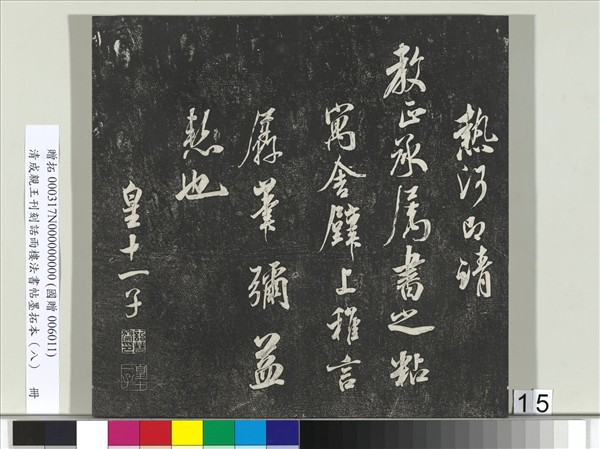 熱河即請
教正承属書之粘
寓舍壁上稚言
孱筆彌益
慙也
皇十一子
皇十一子
贈拓 000317N000000000 (國贈 006011)
清成親王刊刻話雨樓法書帖墨拓本（八） 冊
15